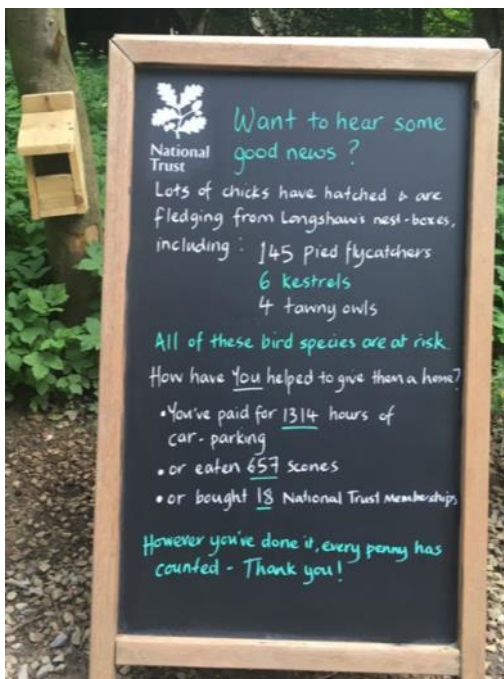 Want to hear some
good news?
National
Trust
Lots of chicks have hatched & are
fledging from Longshaw's nest-boxes,
including: 145 Pied flycatchers
6 kestrels
4 tawny owls
All of these bird species are at risk
How have You helped to give them a home?
• You've paid for 1314 hours of
car-parking
• or eaten 657 scones
• or bought 18 National Trust Memberships
However you've done it, every penny has
counted - Thank you!